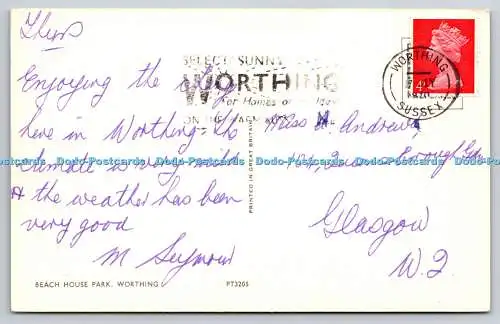 Thurs
Enjoying the stay
here in Worthing the
climate is very mild
& the weather has been
very good
M Seymour
BEACH HOUSE PARK, WORTHING
PT3205
PRINTED IN GREAT BRITAIN
SELECT SUNNY
WORTHING
For Homes or
ON THE
WORTHING
SUSSEX
Miss M. Andrew
Glasgow
W.2
Dodo-Postcards Dodo-Postcards Dodo-Postcards Dodo-Postcards Dodo-Postcards